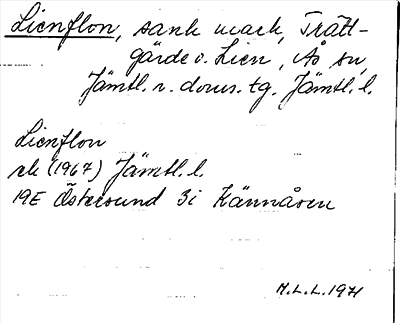 Lienflon, sank mark, Trätt-
gärde o. Lien, Ås sn,
Jämtl. n. doms. tg. Jämtl. l.
Lienflon
ek (1967) Jämtl. l.
19E Östersund 3i Kännåsen
M.L.L. 1971